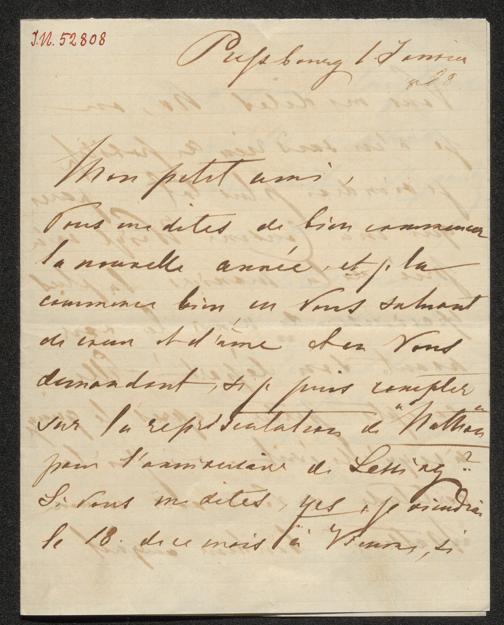 I.N. 52808
Pressbourg 1 Janvier
Mon petit ami,
Vous me dites de bien commencer
la nouvelle année, et je la
commence bien en Vous saluant
de cœur et d'âme et en Vous
demandant, si je puis compter
sur la représentation de "Nathan"
pour l'anniversaire de Lessing?
Si Vous me dites, yes, je viendrai
le 18. de ce mois à Vienne, si